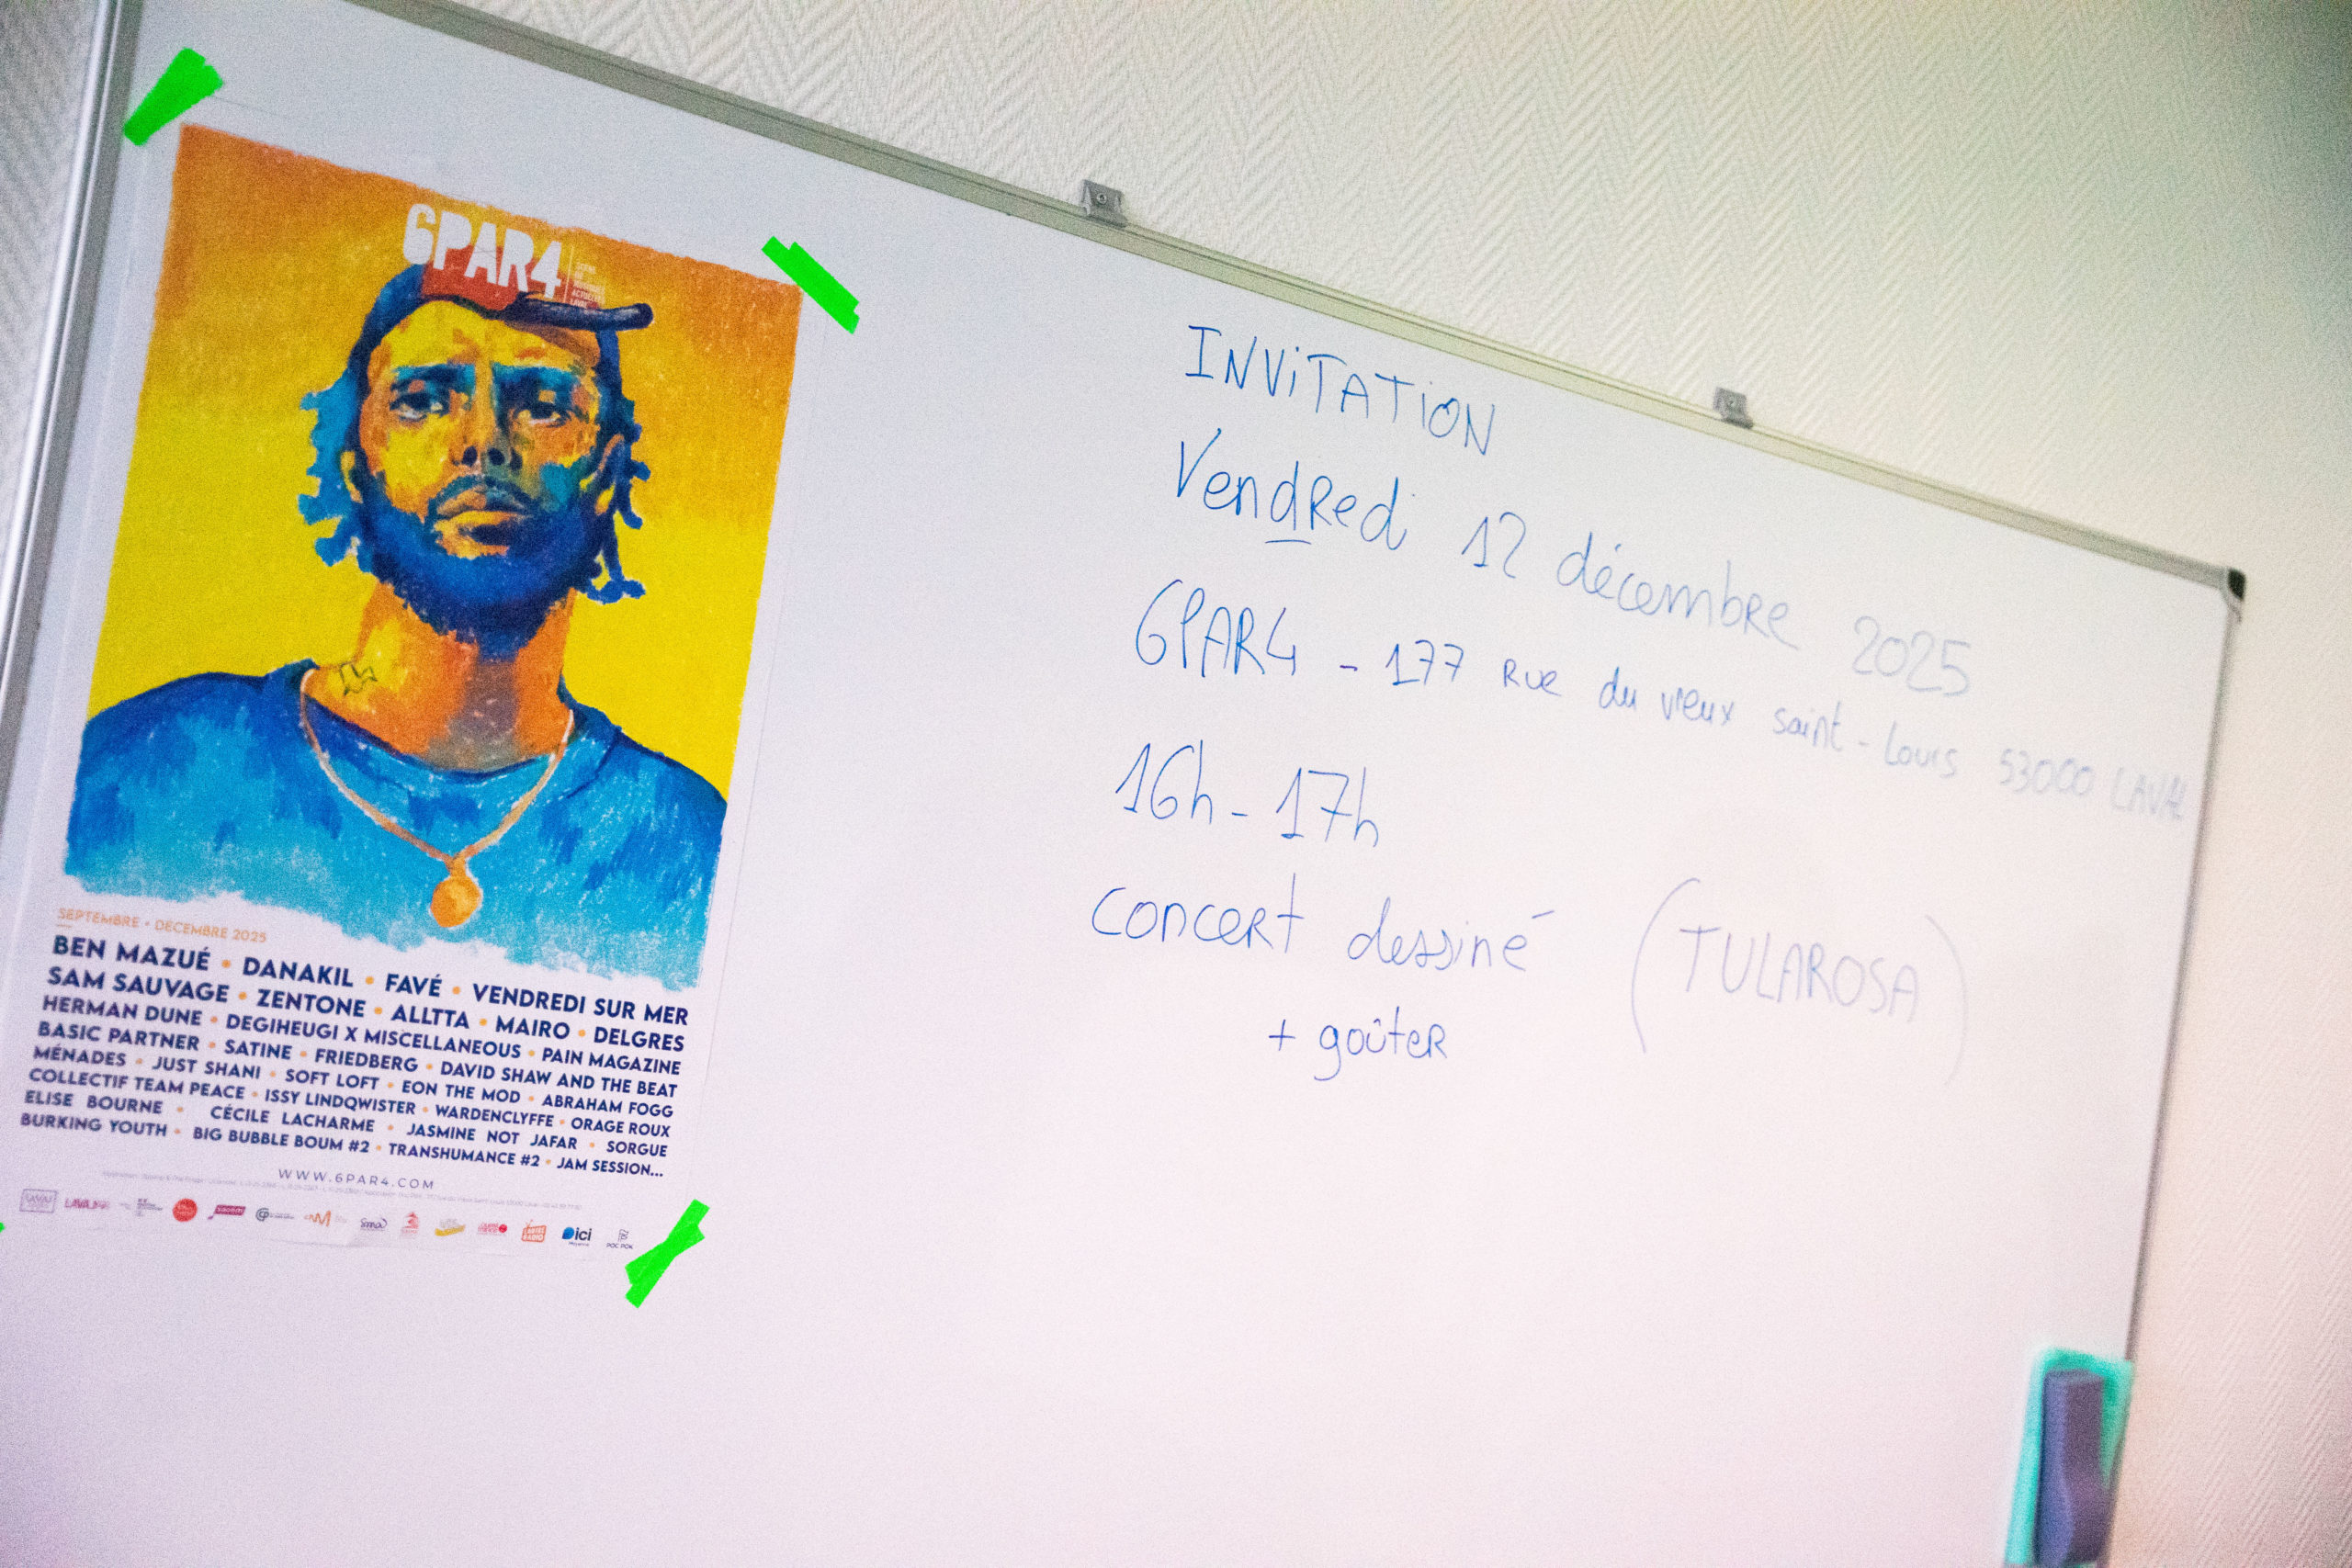 6PAR4
SEPTEMBRE • DÉCEMBRE 2025
BEN MAZUÉ • DANAKIL • FAVÉ • VENDREDI SUR MER
SAM SAUVAGE • ZENTONE • ALLTTA • MAIRO • DELGRES
HERMAN DUNE • DEGIHEUGI X MISCELLANEOUS • PAIN MAGAZINE
BASIC PARTNER • SATINE • FRIEDBERG • DAVID SHAW AND THE BEAT
MÉNADES • JUST SHANI • SOFT LOFT • EON THE MOD • ABRAHAM FOGG
COLLECTIF TEAM PEACE • ISSY LINDQWISTER • WARDENCLYFFE • ORAGE ROUX
ELISE BOURNE • CÉCILE LACHARME • JASMINE NOT JAFAR • SORGUE
BURKING YOUTH • BIG BUBBLE BOUM #2 • TRANSHUMANCE #2 • JAM SESSION...
WWW.6PAR4.COM
ici
INVITATION
Vendredi 12 décembre 2025
6PAR4 - 177 Rue du vieux saint-Louis 53000 LAVAL
16h - 17h
concert dessiné (TULAROSA)
+ goûter